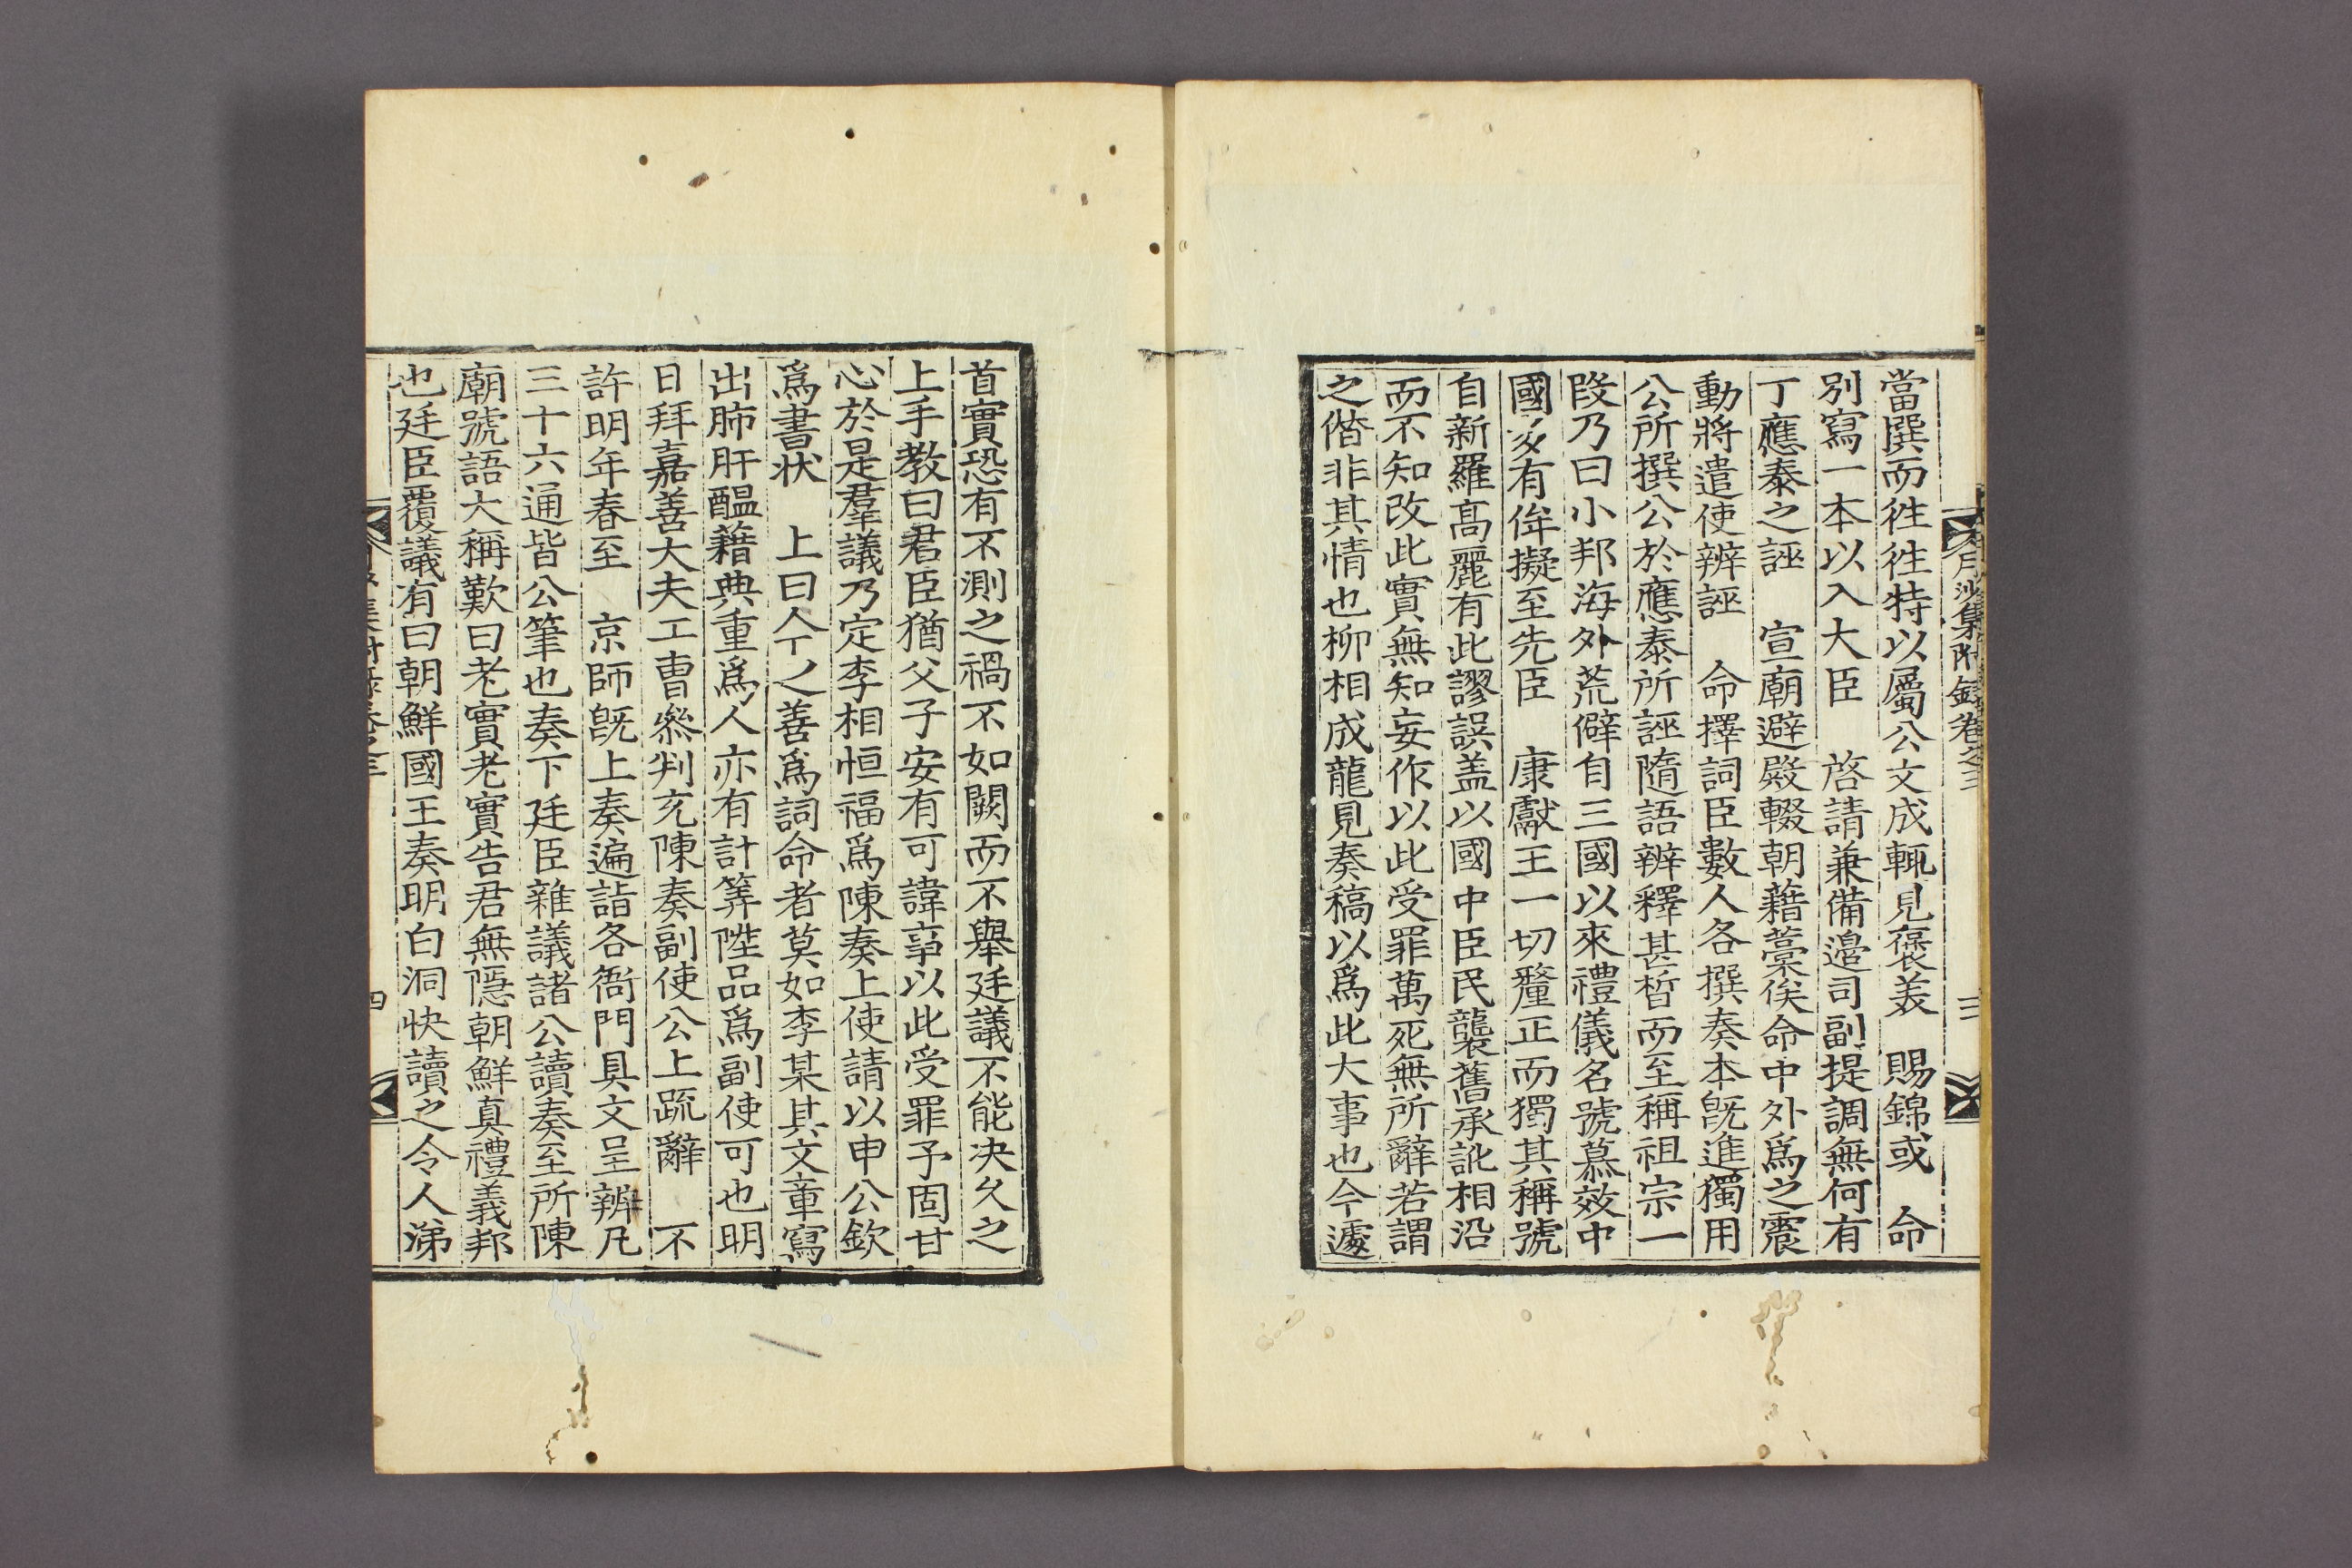 月沙集附錄卷之三
三
當撰而徃徃特以屬公文成輒見褒羙　賜錦或　命
別寫一本以入大臣　啓請兼備邊司副提調無何有
丁應泰之誣　宣廟避殿輟朝藉藁俟命中外爲之震
動將遣使辨誣　命擇詞臣數人各撰奏本旣進獨用
公所撰公於應泰所誣隨語辨釋甚晢而至稱祖宗一
段乃曰小邦海外荒僻自三國以來禮儀名號慕效中
國多有侔擬至先臣　康獻王一切釐正而獨其稱號
自新羅高麗有此謬誤盖以國中臣民襲舊承訛相沿
而不知改此實無知妄作以此受罪萬死無所辭若謂
之僭非其情也柳相成龍見奏稿以爲此大事也今遽
首實恐有不測之禍不如闕而不舉廷議不能決久之
上手教曰君臣猶父子安有可諱事以此受罪予固甘
心於是羣議乃定李相恒福爲陳奏上使請以申公欽
爲書狀　上曰人之善爲詞命者莫如李某其文章寫
出肺肝醞藉典重爲人亦有計筭陞品爲副使可也明
日拜嘉善大夫工曹叅判充陳奏副使公上疏辭　不
許明年春至　京師旣上奏遍詣各衙門具文呈辨凡
三十六通皆公筆也奏下廷臣雜議諸公讀奏至所陳
廟號語大稱歎曰老實老實告君無隱朝鮮真禮義邦
也廷臣覆議有曰朝鮮國王奏明白洞快讀之令人涕
四